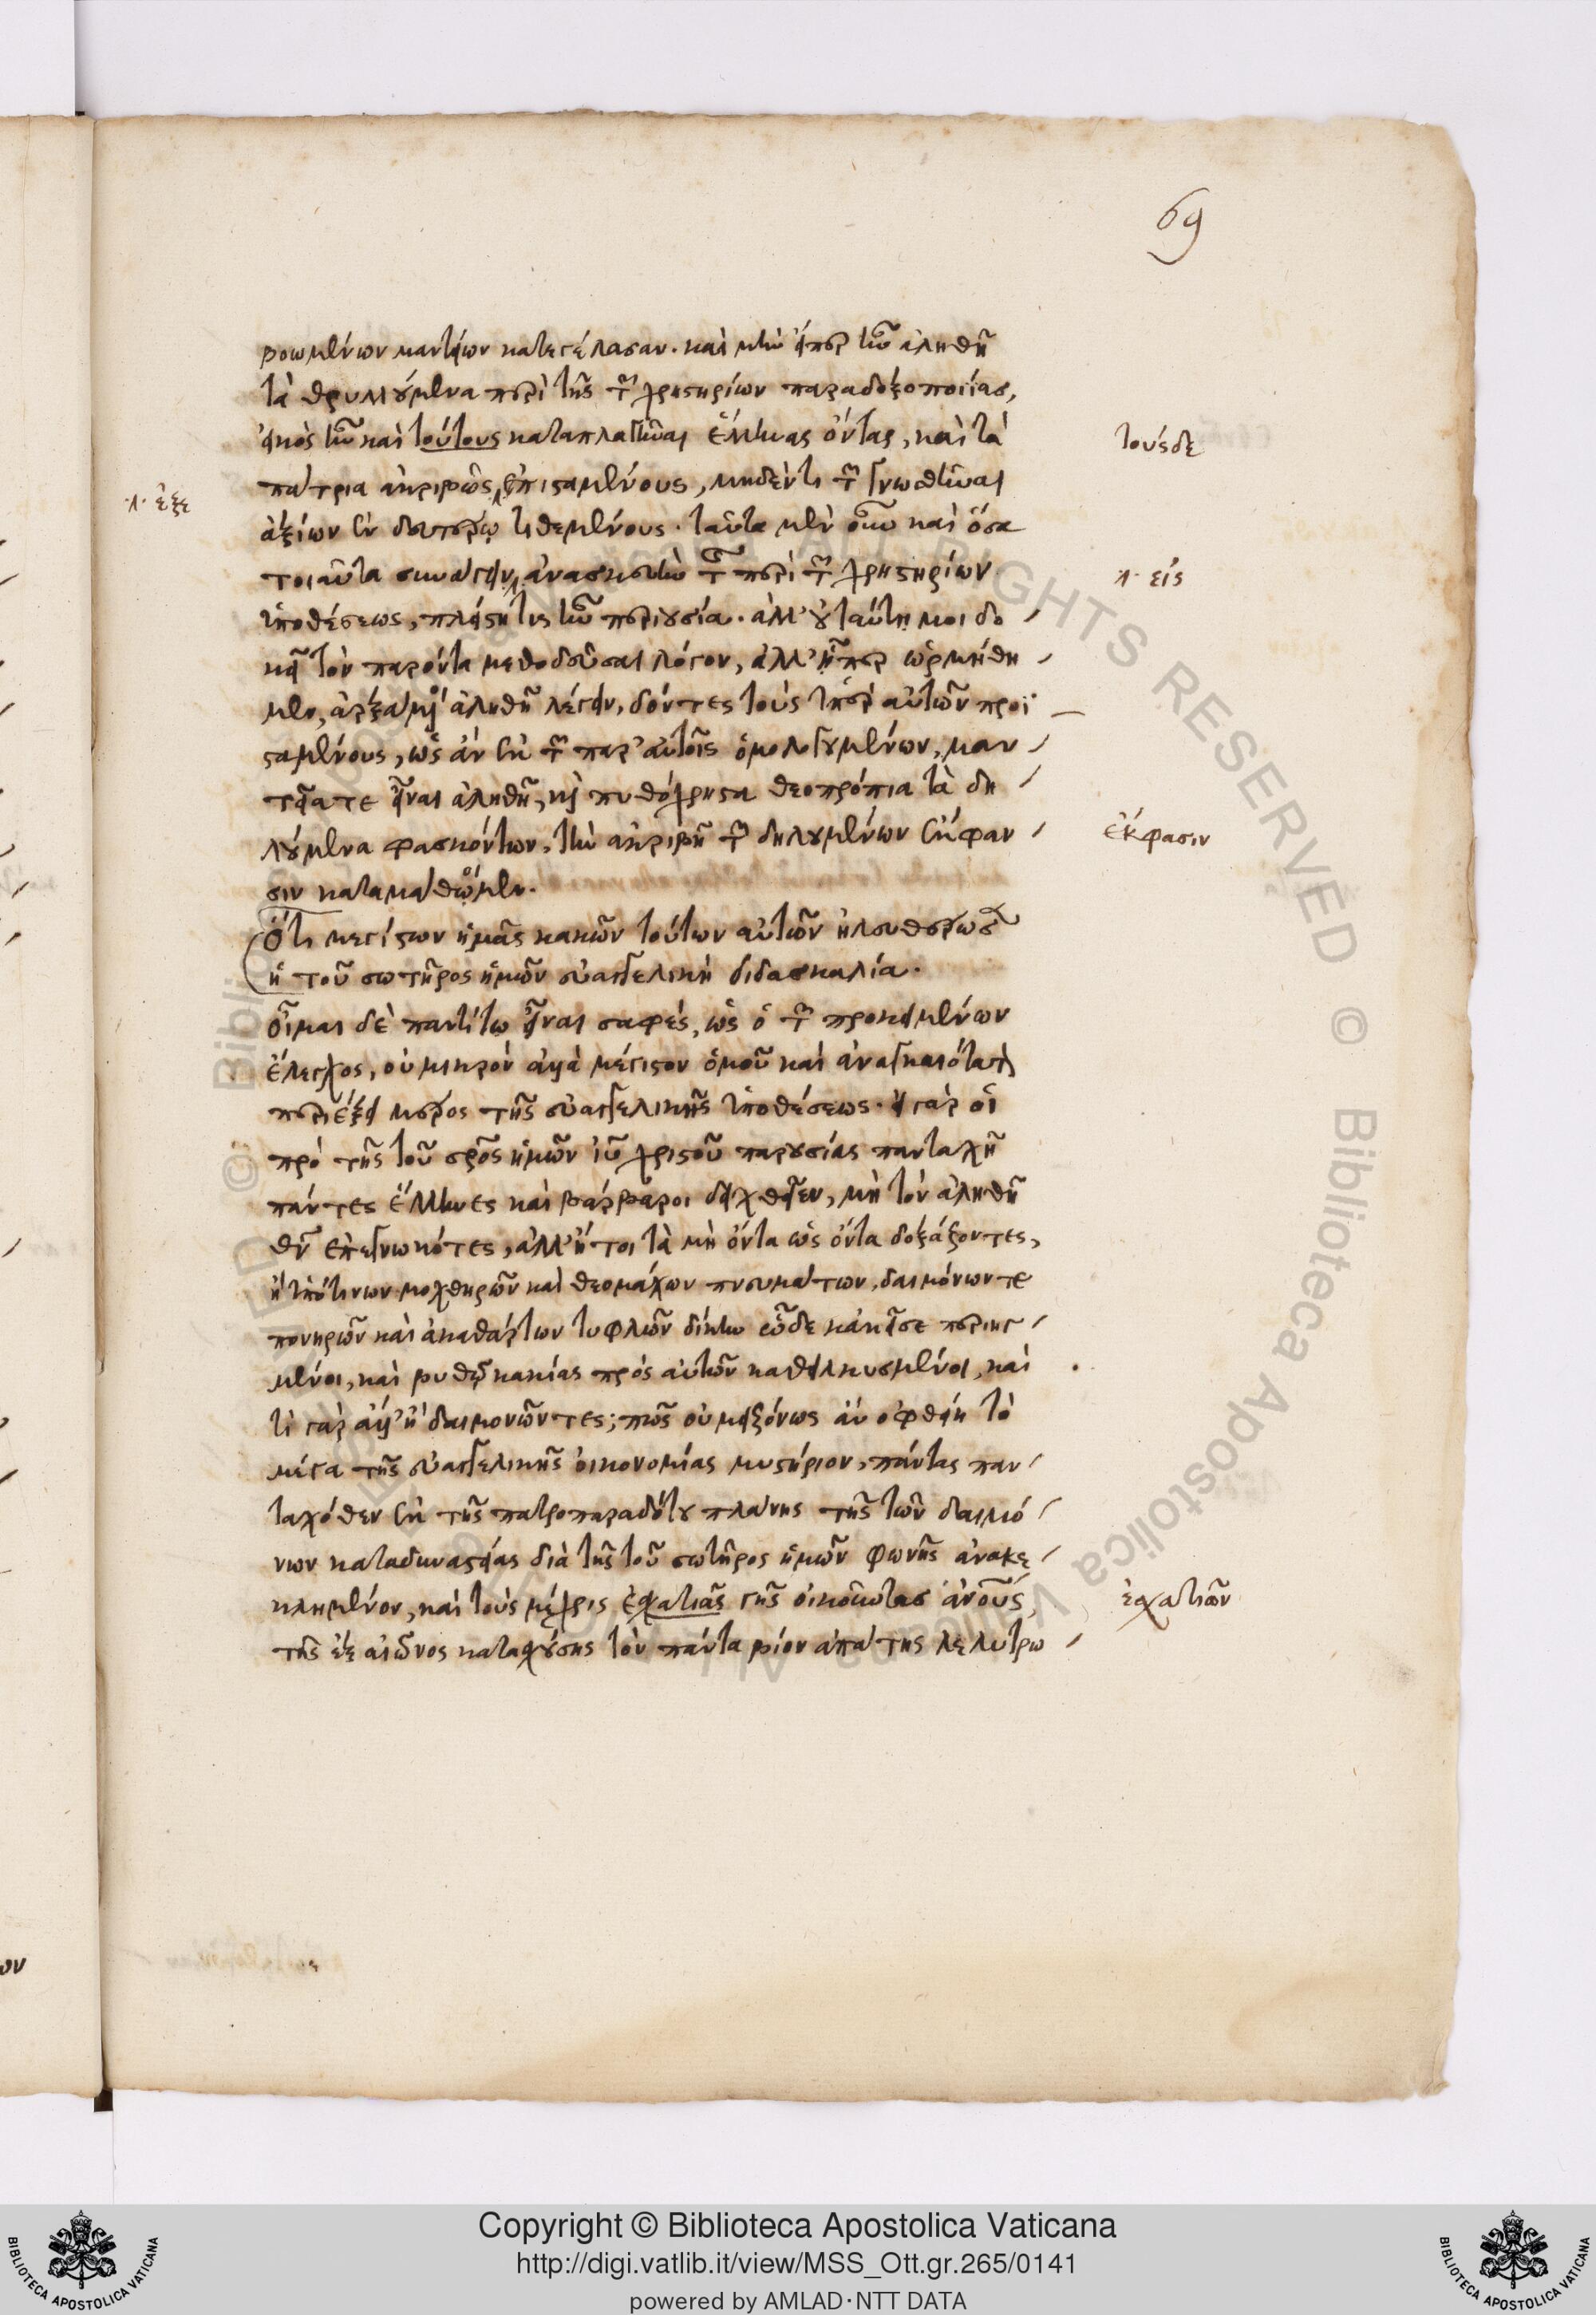 69
βοωμένων μαντείων κατεγέλασαν. καὶ μὴν εἴπερ ἦν ἀληθῆ
τὰ θρυλούμενα περὶ τῆς τῶν χρηστηρίων παραδοξοποιίας,
εἰκὸς ἦν καὶ τούτους καταπλαγῆναι ἕλληνας ὄντας, καὶ τὰ
τούσδε
πάτρια ἀκριβῶς ἐπισταμένους, μηδέν τι τῶν γνωσθῆναι
λ. ἐξε
ἀξίων ἐν δευτέρῳ τιθεμένους. ταῦτα μὲν οὖν καὶ ὅσα
τοιαῦτα συνάγειν ἀνασκευὴν τῆς περὶ τῶν χρηστηρίων
λ. εἰς
ὑποθέσεως, πλείστη τις ἦν περιουσία. ἀλλ' οὐ ταύτῃ μοι δο
κεῖ τὸν παρόντα μεθοδεῦσαι λόγον, ἀλλ' ᾗπερ ὡρμήθη
μεν, ἀρξάμενοι ἀληθῆ λέγειν, δόντες τοὺς ὑπὲρ αὐτῶν προϊ
σταμένους, ὡς ἂν ἐκ τῶν παρ' αὐτοῖς ὁμολογουμένων, μαν
τεῖά τε εἶναι ἀληθῆ, καὶ πυθόχρηστα θεοπρόπια τὰ δη
λούμενα φασκόντων, τὴν ἀκριβῆ τῶν δηλουμένων ἔκφαν
ἔκφασιν
σιν καταμάθωμεν.
Ὅτι μεγίστων ἡμᾶς κακῶν τούτων αὐτῶν ἠλευθέρωσεν
ἡ τοῦ σωτῆρος ἡμῶν εὐαγγελικὴ διδασκαλία.
οἶμαι δὲ παντί τῳ εἶναι σαφές, ὡς ὁ τῶν προκειμένων
ἔλεγχος, οὐ μικρὸν ἀλλὰ μέγιστον ὁμοῦ καὶ ἀναγκαιότατον
περιέξει μέρος τῆς εὐαγγελικῆς ὑποθέσεως. εἰ γὰρ οἱ
πρὸ τῆς τοῦ σρος ἡμῶν ἰυ χριστοῦ παρουσίας πανταχῆ
πάντες ἕλληνες καὶ βάρβαροι δειχθεῖεν, μὴ τὸν ἀληθῆ
θν ἐπεγνωκότες, ἀλλ' ἤτοι τὰ μὴ ὄντα ὡς ὄντα δοξάζοντες,
ἢ ὑπό τινων μοχθηρῶν καὶ θεομάχων πνευμάτων, δαιμόνων τε
πονηρῶν καὶ ἀκαθάρτων τυφλῶν δίκην ὧδε κἀκεῖσε περιηγ
μένοι, καὶ βυθῷ κακίας πρὸς αὐτῶν καθειλκυσμένοι, καὶ
τί γὰρ ἀλλ' ἢ δαιμονῶντες; πῶς οὐ μειζόνως ἂν ὀφθείη τὸ
μέγα τῆς εὐαγγελικῆς οἰκονομίας μυστήριον, πάντας παν
ταχόθεν ἐκ τῆς πατροπαραδότου πλάνης τῆς τῶν δαιμό
νων καταδυναστείας διὰ τῆς τοῦ σωτῆρος ἡμῶν φωνῆς ἀνακε
κλημένον, καὶ τοὺς μέχρις ἐσχατιᾶς γῆς οἰκοῦντας ἀνους,
ἐσχατιῶν
τῆς ἐξ αἰῶνος κατασχούσης τὸν πάντα βίον ἀπάτης λελυτρω
Copyright © Biblioteca Apostolica Vaticana
http://digi.vatlib.it/view/MSS_Ott.gr.265/0141
powered by AMLAD·NTT DATA